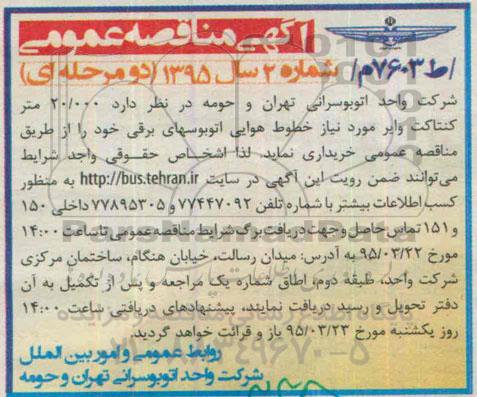 آگهی مناقصه عمومی
شماره ۲ سال ۱۳۹۵ (دو مرحله ای)
/ط۷۶۰۳م/
شرکت واحد اتوبوسرانی تهران و حومه در نظر دارد ۲۰/۰۰۰ متر
کنتاکت وایر مورد نیاز خطوط هوایی اتوبوسهای برقی خود را از طریق
مناقصه عمومی خریداری نماید. لذا اشخاص حقوقی واجد شرایط
می‌توانند ضمن رویت این آگهی در سایت http://bus.tehran.ir به منظور
کسب اطلاعات بیشتر با شماره تلفن ۷۷۴۴۷۰۹۲ و ۷۷۸۹۵۳۰۵ داخلی ۱۵۰
و ۱۵۱ تماس حاصل و جهت دریافت برگ شرایط مناقصه عمومی تا ساعت ۱۴:۰۰
مورخ ۹۵/۰۳/۲۲ به آدرس: میدان رسالت، خیابان هنگام، ساختمان مرکزی
شرکت واحد، طبقه دوم، اطاق شماره یک مراجعه و پس از تکمیل به آن
دفتر تحویل و رسید دریافت نمایند. پیشنهادهای دریافتی ساعت ۱۴:۰۰
روز یکشنبه مورخ ۹۵/۰۳/۲۳ باز و قرائت خواهد گردید.
روابط عمومی و امور بین الملل
شرکت واحد اتوبوسرانی تهران و حومه
ParsNamadData
۰۲۱-۸۸۳۴۹۶۷۰-۵